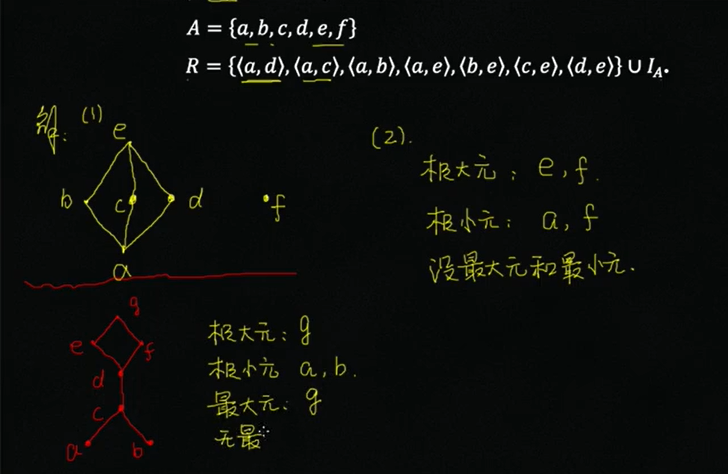 A = {a, b, c, d, e, f}
R = {⟨a, d⟩, ⟨a, c⟩, ⟨a, b⟩, ⟨a, e⟩, ⟨b, e⟩, ⟨c, e⟩, ⟨d, e⟩} ∪ I_A.
解: (1)
e
b c d f
a
(2).
极大元: e, f.
极小元: a, f
没最大元和最小元.
g
e f
d
c
a b
极大元: g
极小元 a, b.
最大元: g
无最